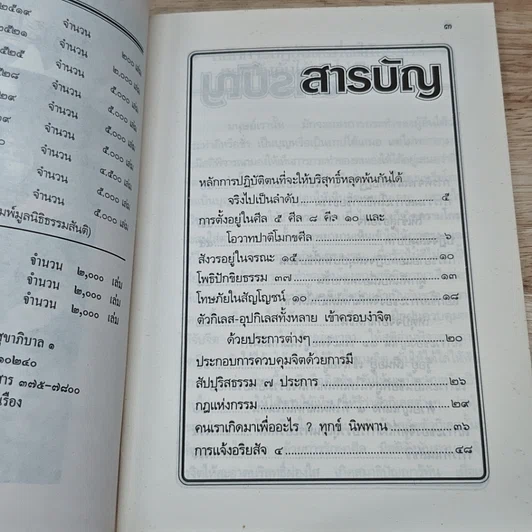 ๒๕๑๙ จำนวน ๒๐๐ เล่ม
๒๕๒๑ จำนวน ๒,๐๐๐ เล่ม
๒๕๒๕ จำนวน ๕,๐๐๐ เล่ม
๒๘ จำนวน ๕,๐๐๐ เล่ม
๒๙ จำนวน ๕,๐๐๐ เล่ม
จำนวน ๔,๕๐๐ เล่ม
จำนวน ๕,๐๐๐ เล่ม
จำนวน ๕,๐๐๐ เล่ม
พิมพ์มูลนิธิธรรมสันติ)
จำนวน ๒,๐๐๐ เล่ม
จำนวน ๒,๐๐๐ เล่ม
จำนวน ๒,๐๐๐ เล่ม
สุขาภิบาล ๑
๑๐๒๔๐
๓๗๕-๗๘๐๐
เรือง
๓
สารบัญ
หลักการปฏิบัติตนที่จะให้บริสุทธิ์หลุดพ้นกันได้
จริงไปเป็นลำดับ ๕
การตั้งอยู่ในศีล ๕ ศีล ๘ ศีล ๑๐ และ
โอวาทปาติโมกขศีล ๖
สังวรอยู่ในจรณะ ๑๕ ๑๐
โพธิปักขิยธรรม ๓๗ ๑๓
โทษภัยในสัญโญชน์ ๑๐ ๑๘
ตัวกิเลส-อุปกิเลสทั้งหลาย เข้าครอบงำจิต
ด้วยประการต่างๆ ๒๐
ประกอบการควบคุมจิตด้วยการมี
สัปปุริสธรรม ๗ ประการ ๒๖
กฎแห่งกรรม ๒๙
คนเราเกิดมาเพื่ออะไร ? ทุกข์ นิพพาน ๓๖
การแจ้งอริยสัจ ๔ ๔๘